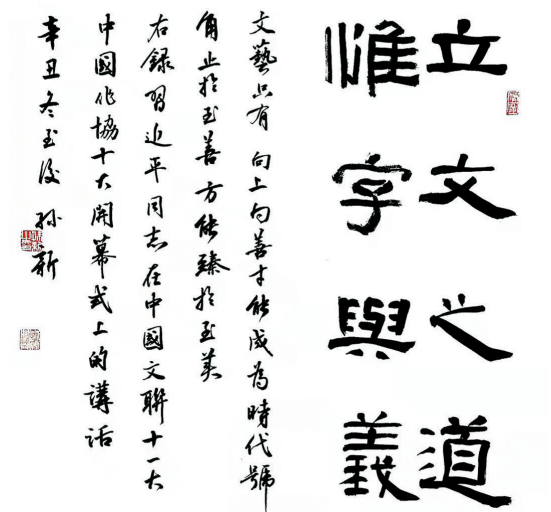 立文之道
惟字與義
文藝只有向上向善才能成為時代號
角止於至善方能臻於至美
右錄習近平同志在中國文聯十一大
中國作協十大開幕式上的講話
辛丑冬至後 孫新